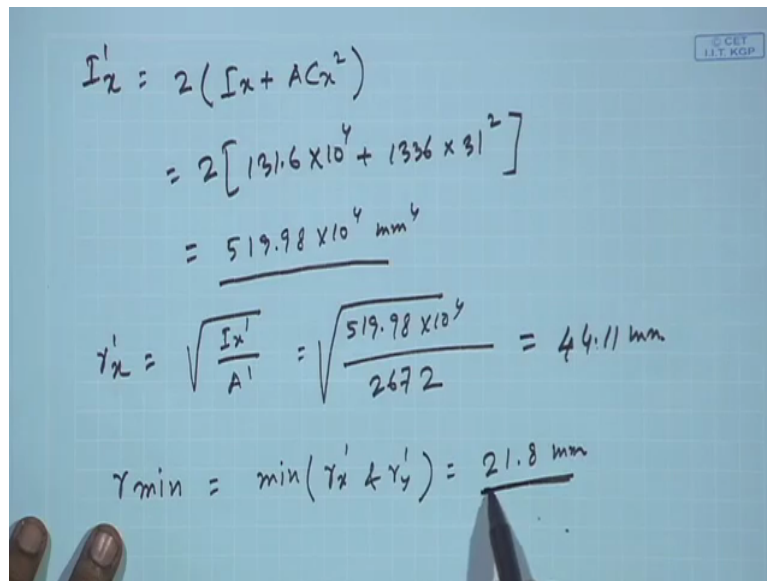 © CET
I.I.T. KGP
I'x = 2(Ix + ACx²)
= 2[131.6 × 10⁴ + 1336 × 31²]
= 519.98 × 10⁴ mm⁴
r'x = √(Ix'/A') = √(519.98 × 10⁴/2672) = 44.11 mm
rmin = min(rx' & ry') = 21.8 mm